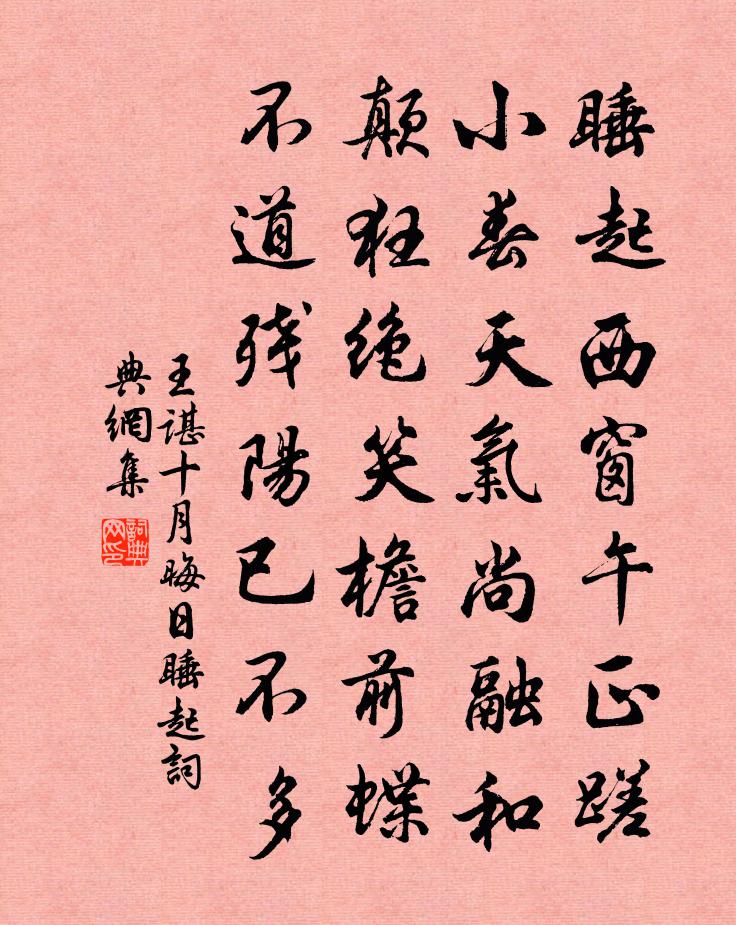 睡起西窗午正蹉
小春天氣尚融和
顛狂绝笑檐前蝶
不道残陽已不多
王諶十月晦日睡起詞
典網集
詞典网印